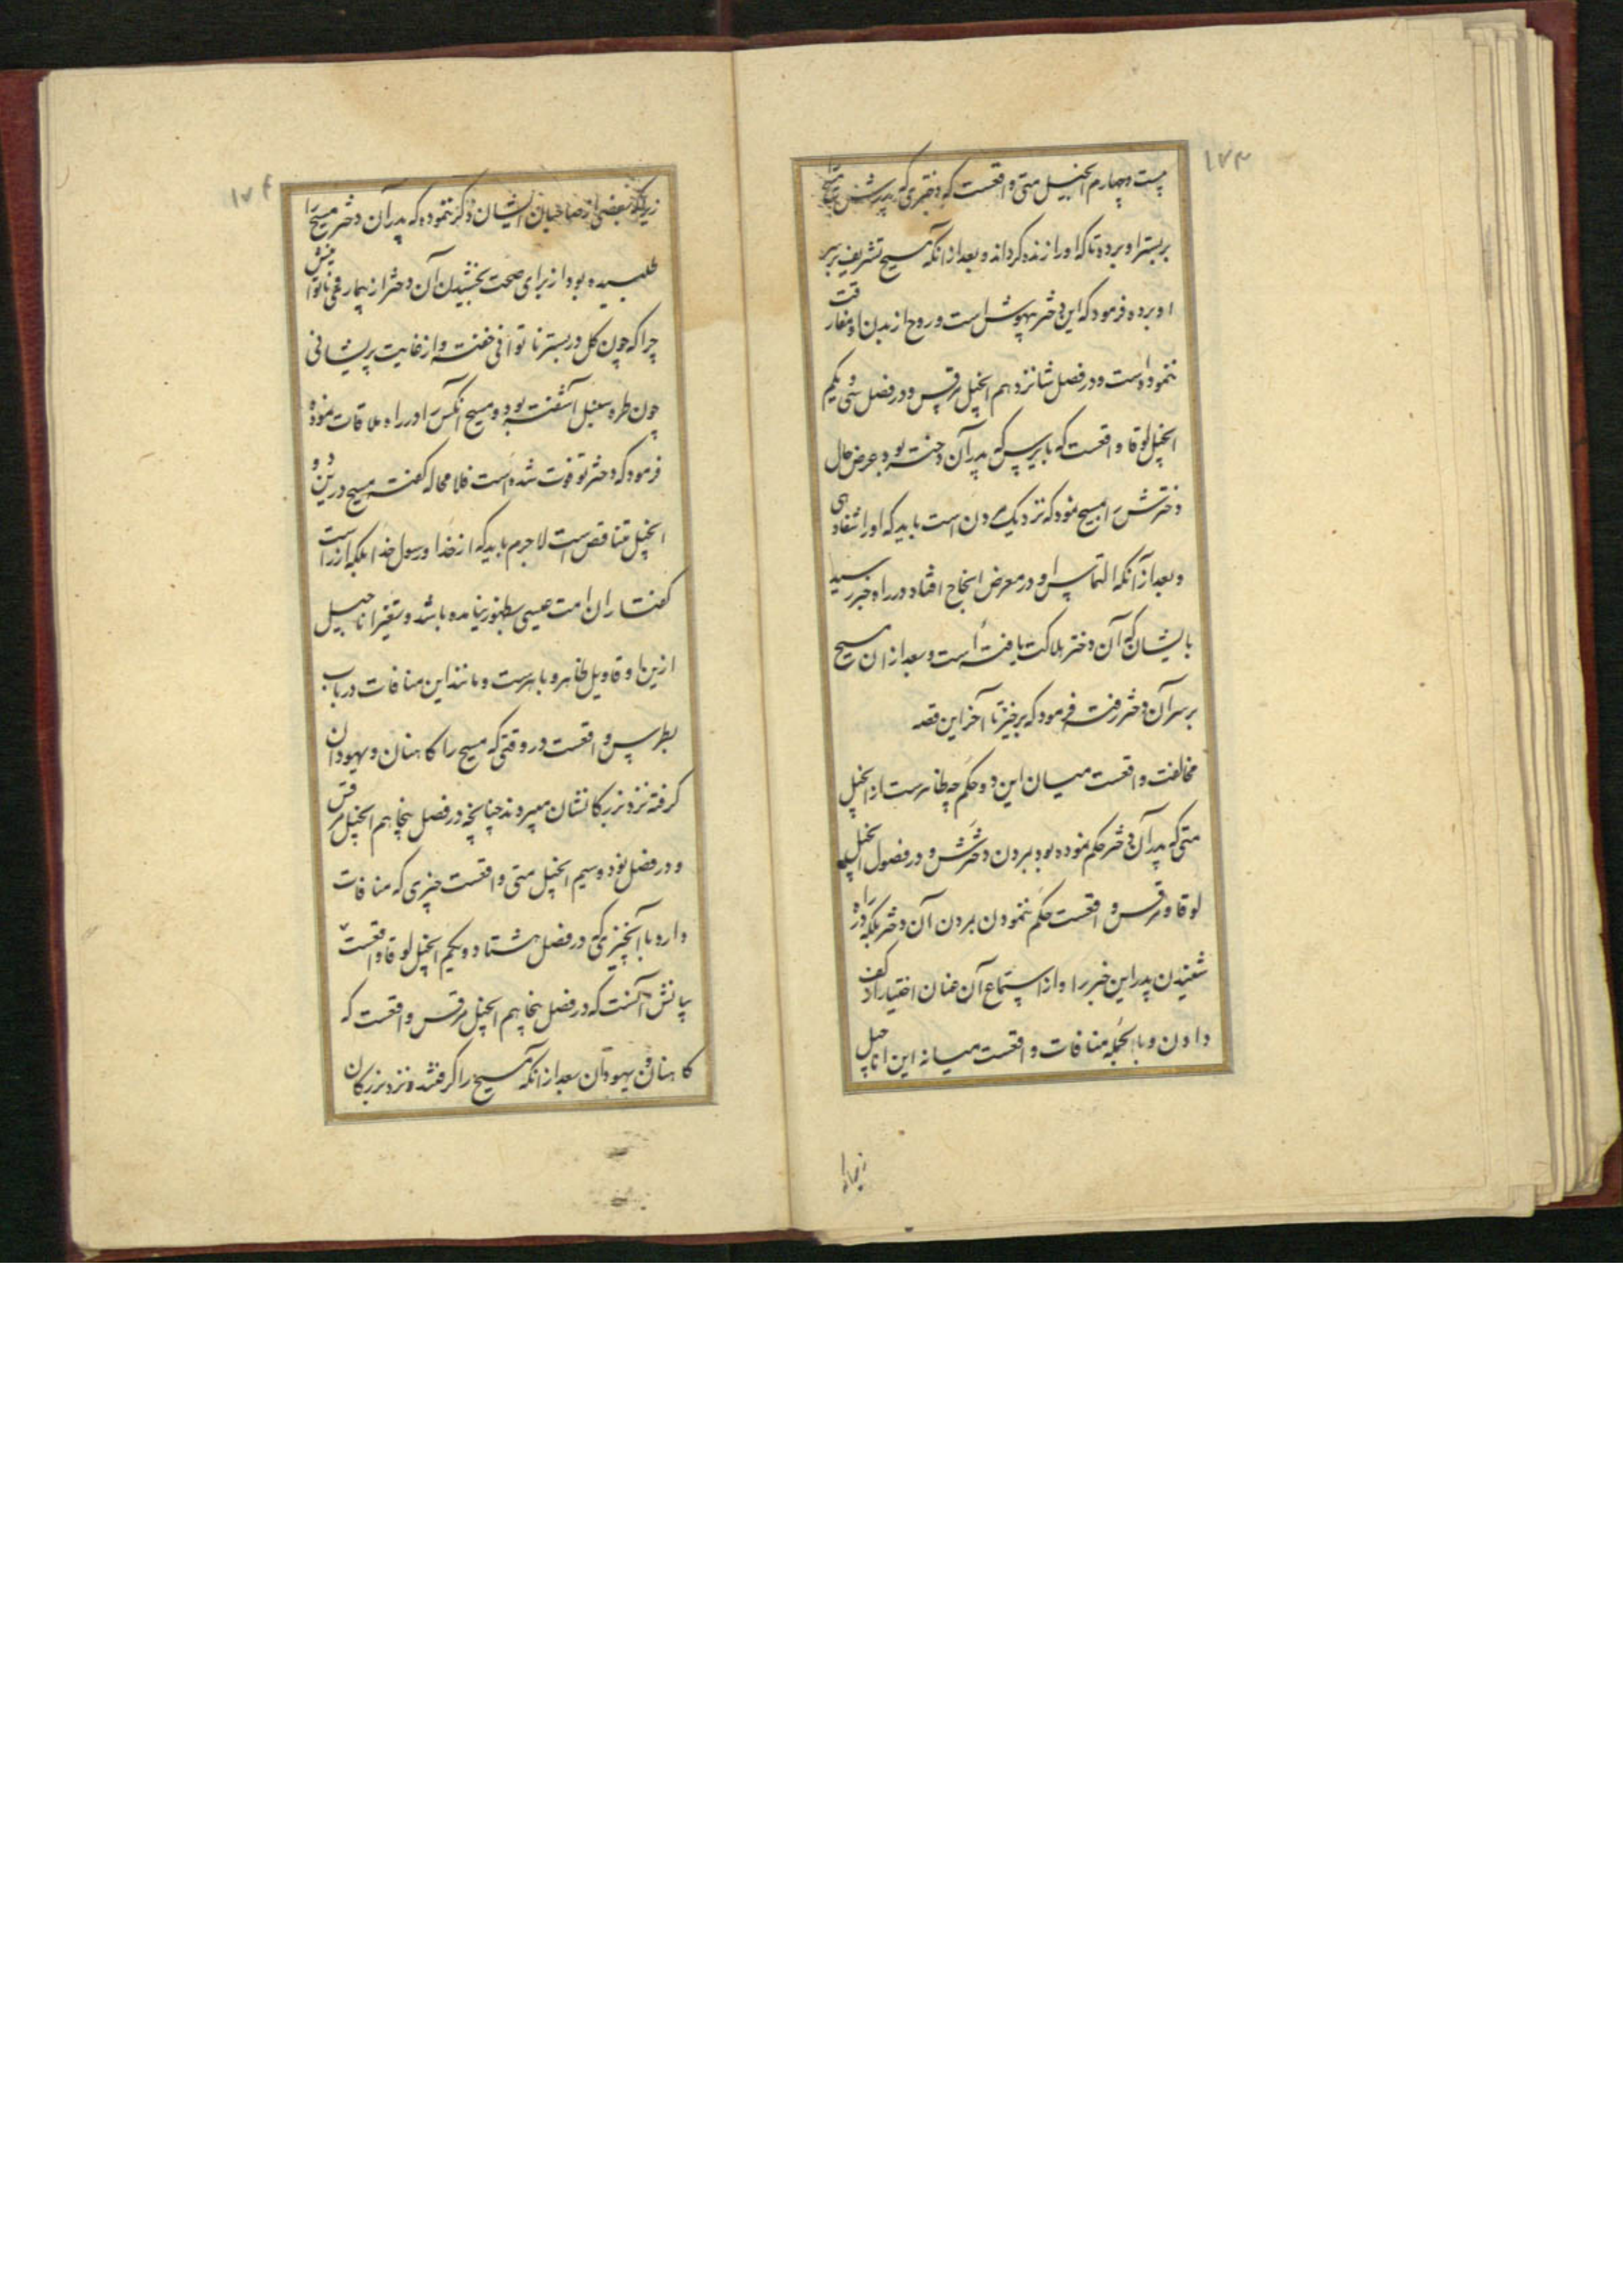 ۱۷۳
بیست و چهارم انجیل متی واقعست که دختری که پدرش مسیح را
بر بستر او برده تا که او را زنده کرداند و بعد از آنکه مسیح تشریف بر سر
او برده فرمود که این دختر بیهوش است و روح از بدن او مفارقت
ننموده است و در فصل شانزدهم انجیل مرقس و در فصل سی و یکم
انجیل لوقا واقعست که بایرس که پدر آن دختر بود عرض حال
دخترش را بمسیح نمود که نزدیک بمردن است باید که او را شفا دهی
و بعد از آنکه التماس او در معرض انجاح افتاد در راه خبر رسید
بایشان که آن دختر هلاکت یافته است و بعد از ان مسیح
بر سر آن دختر رفته فرمود که برخیز تا آخر این قصه
مخالفت واقعست میان این دو حکم چه ظاهرست از انجیل
متی که پدر آن دختر حکم نموده بود بمردن دخترش و در فصول انجیل
لوقا و مرقس واقعست حکم ننمودن بمردن آن دختر بلکه در راه
شنیدن پدر این خبر را و از استماع آن عنان اختیار از کف
دادن و بالجمله منافات واقعست میانه این اناجیل
زیرا که
۱۷۴
زیرا که بعضی از صاحبان ایشان ذکر نموده که پدر آن دختر مسیح را
طلبیده بود از برای صحت بخشیدن آن دختر از بیماری و ناتوانیش
چرا که چون کل در بستر ناتوانی خفته و از غایت پریشانی
چون طره سنبل آشفته بود و مسیح آنکس را در راه ملاقات نموده
فرمود که دختر تو فوت شده است فلا محاله کفته مسیح درین دو
انجیل متناقض است لاجرم باید که از خدا و رسول خدا بلکه از راست
کفتاران امت عیسی بظهور نیامده باشد و تغیر اناجیل
ازینها و قاویل ظاهر و باهرست و مانند این منافات در باب
بطرس واقعست در وقتی که مسیح را کاهنان و یهودان
کرفته نزد بزرکانشان میبردند چنانچه در فصل پنجاهم انجیل مرقس
و در فصل نود و سیم انجیل متی واقعست چیزی که منافات
دارد با آنچیزی که در فصل هشتاد و یکم انجیل لوقا واقعست
بیانش آنست که در فصل پنجاهم انجیل مرقس واقعست که
کاهنان و یهودان بعد از آنکه مسیح را کرفتند و نزد بزرکان